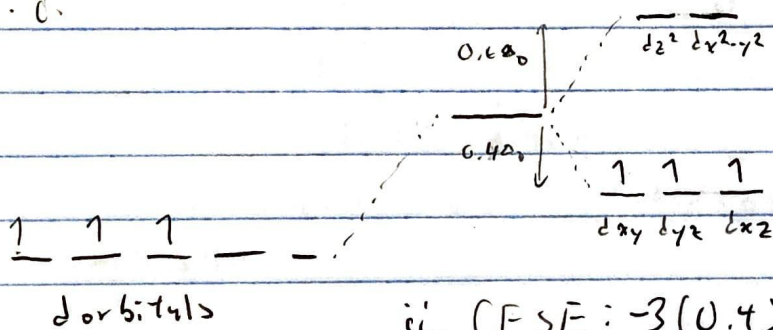 . C.
dz² dx²-y²
0.6Δ₀
0.4Δ₀
1 1 1
dxy dyz dxz
1 1 1
d orbitals
ii. CFSE: -3(0.4)